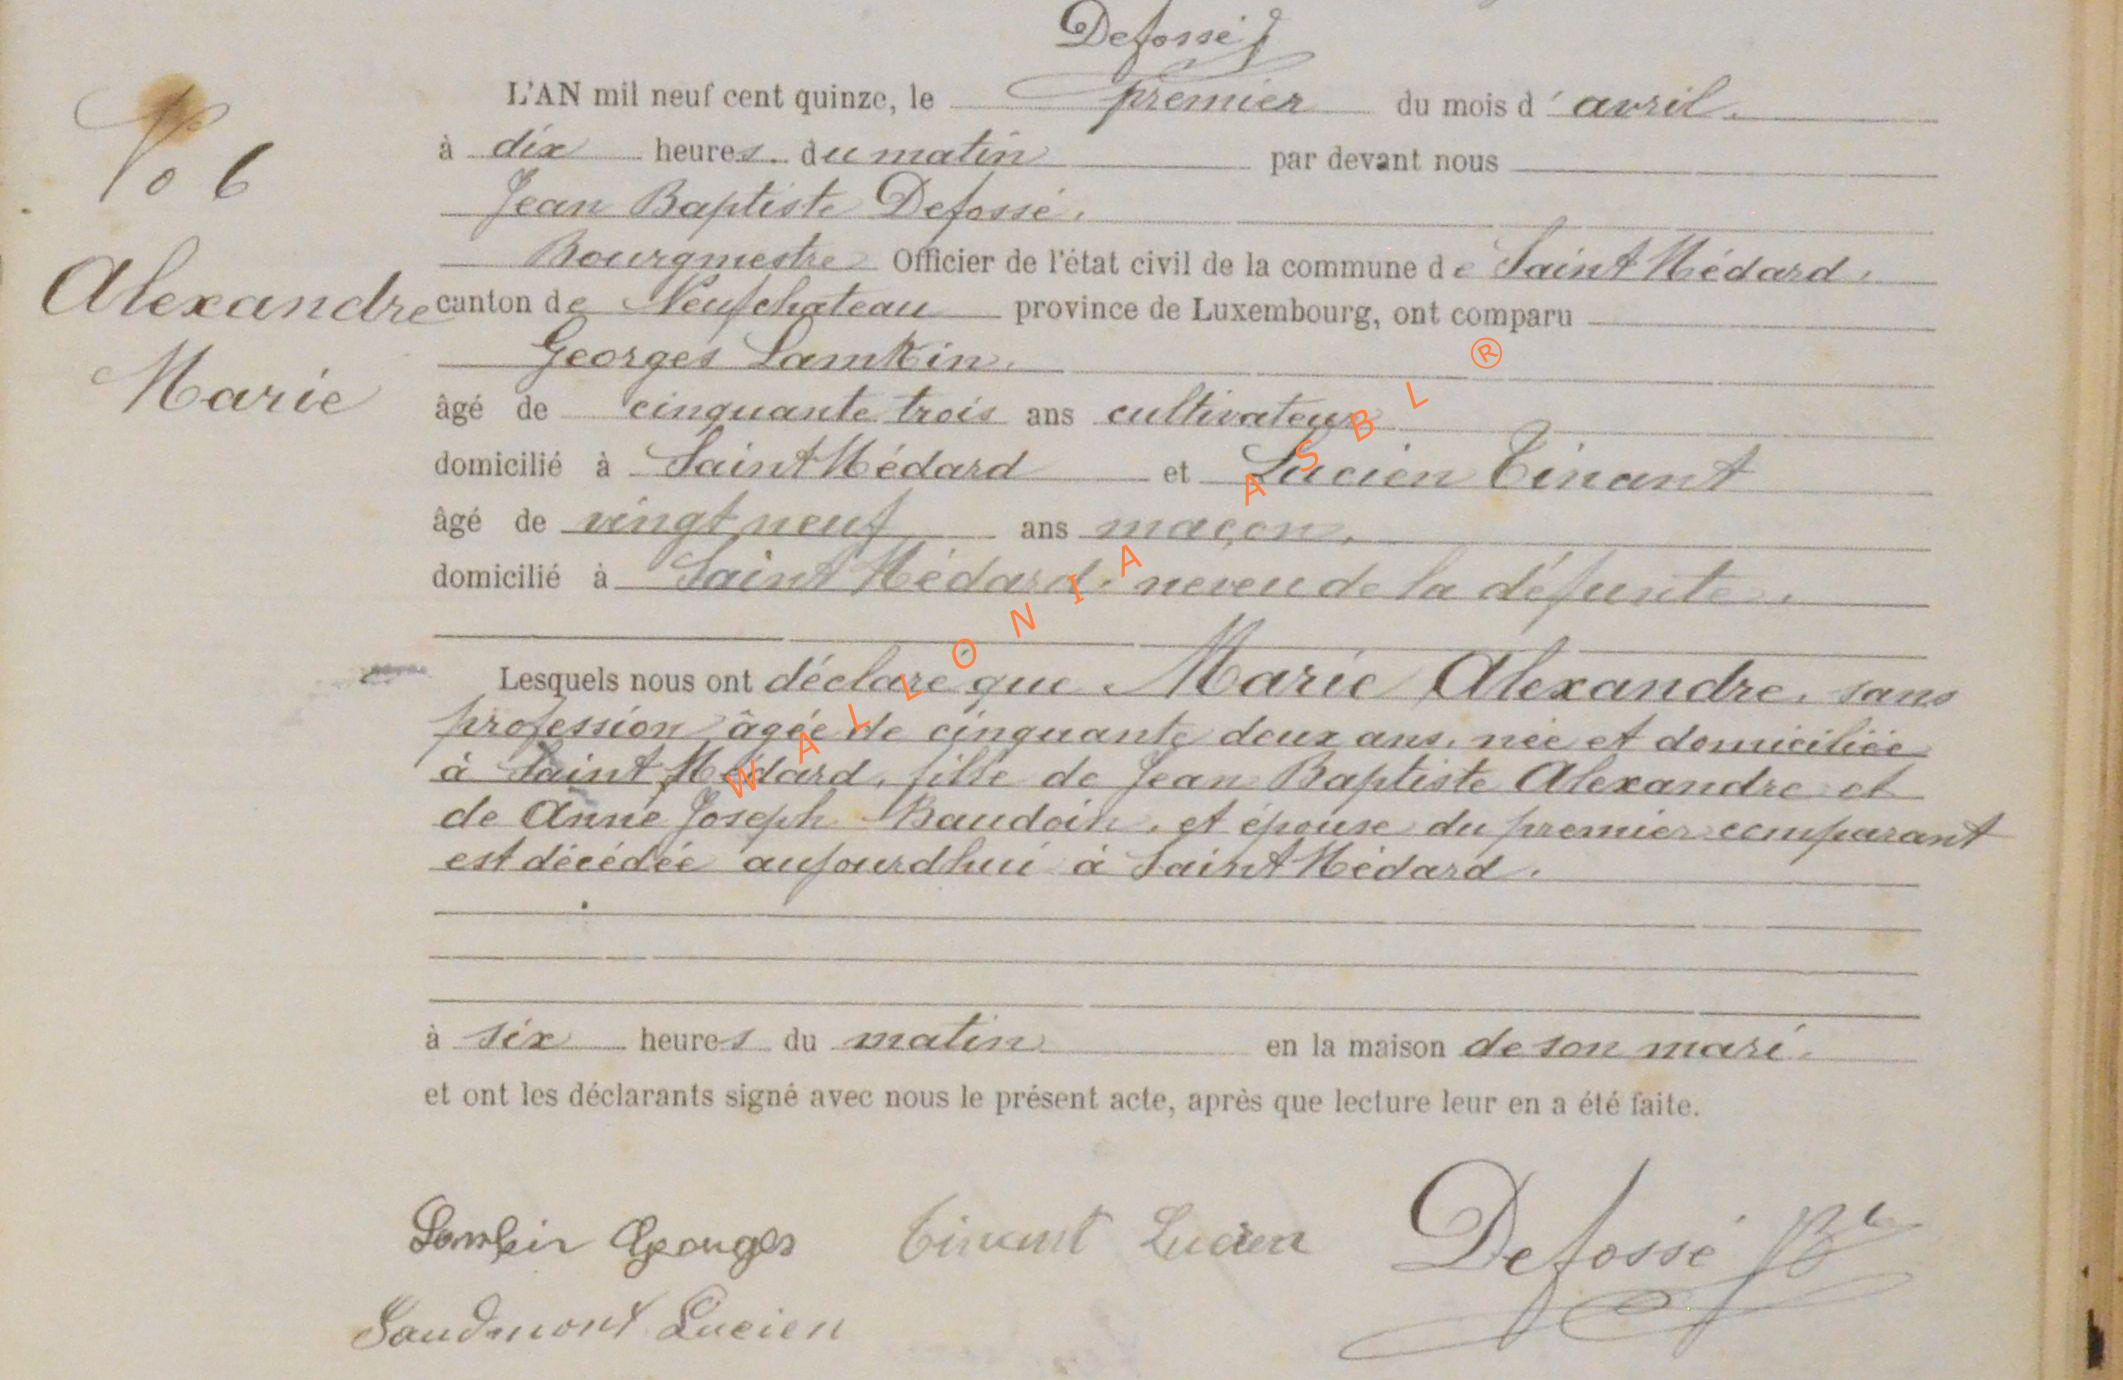 Defossé
L'AN mil neuf cent quinze, le premier du mois d'avril.
à dix heures du matin par devant nous
Jean Baptiste Defossé.
Bourgmestre Officier de l'état civil de la commune de Saint Médard.
canton de Neufchateau province de Luxembourg, ont comparu
Georges Lambin.
âgé de cinquante trois ans cultivateur
domicilié à Saint Médard et Lucien Tinant
âgé de vingt neuf ans maçon.
domicilié à Saint Médard. neveu de la défunte.
Lesquels nous ont déclaré que Marie Alexandre. sans
profession âgée de cinquante deux ans. née et domiciliée
à Saint Médard. fille de Jean Baptiste Alexandre et
de Anne Joseph Baudoin. et épouse du premier comparant
est décédée aujourdhui à Saint Médard.
à six heures du matin en la maison de son mari.
et ont les déclarants signé avec nous le présent acte, après que lecture leur en a été faite.
No 6
Alexandre
Marie
Lambin Georges Tinant Lucien Defossé JB
Lucien
WALLONIA ASBL ®